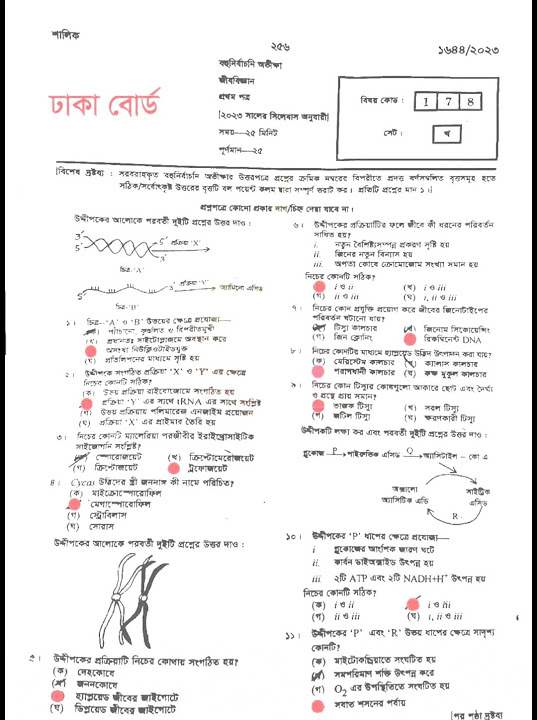 শালিক
২৫৬
১৬৪৪/২০২৩
বহুনির্বাচনি অভীক্ষা
জীববিজ্ঞান
প্রথম পত্র
[২০২৩ সালের সিলেবাস অনুযায়ী]
সময়—২৫ মিনিট
পূর্ণমান—২৫
ঢাকা বোর্ড
বিষয় কোড : 1 7 8
সেট : খ
[বিশেষ দ্রষ্টব্য : সরবরাহকৃত বহুনির্বাচনি অভীক্ষার উত্তরপত্রে প্রশ্নের ক্রমিক নম্বরের বিপরীতে প্রদত্ত বর্ণসম্বলিত বৃত্তসমূহ হতে
সঠিক/সর্বোৎকৃষ্ট উত্তরের বৃত্তটি বল পয়েন্ট কলম দ্বারা সম্পূর্ণ ভরাট কর। প্রতিটি প্রশ্নের মান ১।]
প্রশ্নপত্রে কোনো প্রকার দাগ/চিহ্ন দেয়া যাবে না।
উদ্দীপকের আলোকে পরবর্তী দুইটি প্রশ্নের উত্তর দাও :
3′
5′
5′ প্রক্রিয়া 'X'
3′
চিত্র-'A'
5′
3′ প্রক্রিয়া 'Y'
অ্যামিনো এসিড
চিত্র-'B'
১। চিত্র—'A' ও 'B' উভয়ের ক্ষেত্রে প্রযোজ্য—
প্যাঁচানো, কুণ্ডলিত ও বিপরীতমুখী
(খ) প্রধানতঃ সাইটোপ্লাজমে অবস্থান করে
অসংখ্য নিউক্লিওটাইডযুক্ত
(ঘ) প্রতিলিপনের মাধ্যমে সৃষ্টি হয়
২। উদ্দীপকে সংগঠিত প্রক্রিয়া 'X' ও 'Y' এর ক্ষেত্রে
নিচের কোনটি সঠিক?
(ক) উভয় প্রক্রিয়া রাইবোজোমে সংগঠিত হয়
প্রক্রিয়া 'Y' এর সাথে tRNA এর সাথে সংশ্লিষ্ট
(গ) উভয় প্রক্রিয়ায় পলিমারেজ এনজাইম প্রয়োজন
(ঘ) প্রক্রিয়া 'X' এর প্রাইমার তৈরি হয়
৩। নিচের কোনটি ম্যালেরিয়া পরজীবীর ইরাইথ্রোসাইটিক
সাইজোগনি সংশ্লিষ্ট?
স্পোরোজয়েট
(খ) ক্রিপ্টোমেরোজয়েট
(গ) ক্রিপ্টোজয়েট
ট্রফোজয়েট
৪। Cycas উদ্ভিদের স্ত্রী জননাঙ্গ কী নামে পরিচিত?
(ক) মাইক্রোস্পোরোফিল
মেগাস্পোরোফিল
(গ) স্ট্রোবিলাস
(ঘ) সোরাস
উদ্দীপকের আলোকে পরবর্তী দুইটি প্রশ্নের উত্তর দাও :
৫। উদ্দীপকের প্রক্রিয়াটি নিচের কোথায় সংগঠিত হয়?
(ক) দেহকোষে
জননকোষে
হ্যাপ্লয়েড জীবের জাইগোটে
(ঘ) ডিপ্লয়েড জীবের জাইগোটে
৬। উদ্দীপকের প্রক্রিয়াটির ফলে জীবে কী ধরনের পরিবর্তন
সাধিত হয়?
i. নতুন বৈশিষ্ট্যসম্পন্ন প্রকরণ সৃষ্টি হয়
ii. জিনের নতুন বিন্যাস হয়
iii. অপত্য কোষে ক্রোমোজোম সংখ্যা সমান হয়
নিচের কোনটি সঠিক?
i ও ii
(খ) i ও iii
(গ) ii ও iii
(ঘ) i, ii ও iii
৭। নিচের কোন প্রযুক্তি প্রয়োগ করে জীবের জিনোটাইপের
পরিবর্তন ঘটানো যায়?
টিস্যু কালচার
জিনোম সিকোয়েন্সিং
(গ) জিন ক্লোনিং
রিকম্বিনেন্ট DNA
৮। নিচের কোনটির মাধ্যমে হ্যাপ্লয়েড উদ্ভিদ উৎপাদন করা যায়?
(ক) মেরিস্টেম কালচার
(খ) ক্যালাস কালচার
পরাগধানী কালচার
(ঘ) কক্ষ মুকুল কালচার
৯। নিচের কোন টিস্যুর কোষগুলো আকারে ছোট এবং দৈর্ঘ্য
ও প্রস্থে প্রায় সমান?
ভাজক টিস্যু
(খ) সরল টিস্যু
(গ) জটিল টিস্যু
(ঘ) ক্ষরণকারী টিস্যু
উদ্দীপকটি লক্ষ্য কর এবং পরবর্তী দুইটি প্রশ্নের উত্তর দাও :
গ্লুকোজ P পাইরুভিক এসিড Q অ্যাসিটাইল – কো এ
অক্সালো
অ্যাসিটিক এসিড
সাইট্রিক
এসিড
R
১০। উদ্দীপকের 'P' ধাপের ক্ষেত্রে প্রযোজ্য—
i গ্লুকোজের আংশিক জারণ ঘটে
ii. কার্বন ডাইঅক্সাইড উৎপন্ন হয়
iii. ২টি ATP এবং ২টি NADH+H⁺ উৎপন্ন হয়
নিচের কোনটি সঠিক?
(ক) i ও ii
i ও iii
(গ) ii ও iii
(ঘ) i, ii ও iii
১১। উদ্দীপকের 'P' এবং 'R' উভয় ধাপের ক্ষেত্রে সাদৃশ্য
কোনটি?
(ক) মাইটোকন্ড্রিয়াতে সংঘটিত হয়
সমপরিমাণ শক্তি উৎপন্ন করে
(গ) O₂ এর উপস্থিতিতে সংঘটিত হয়
সবাত শসনের পর্যায়
[পর পৃষ্ঠা দ্রষ্টব্য